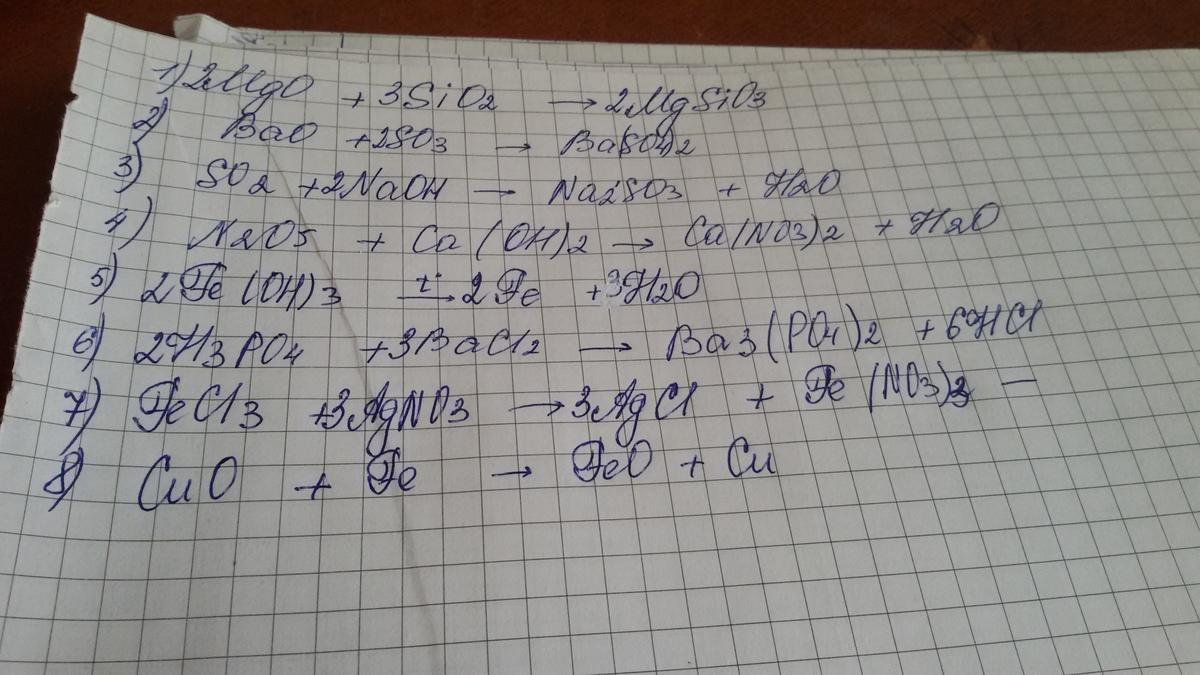 1) 2MgO + 3SiO2 → 2MgSiO3
2) BaO + 2SO3 → Ba(SO4)2
3) SO2 + 2NaOH → Na2SO3 + H2O
4) N2O5 + Ca(OH)2 → Ca(NO3)2 + H2O
5) 2Fe(OH)3 t→ 2Fe + 3H2O
6) 2H3PO4 + 3BaCl2 → Ba3(PO4)2 + 6HCl
7) FeCl3 + 3AgNO3 → 3AgCl + Fe(NO3)3 —
8) CuO + Fe → FeO + Cu